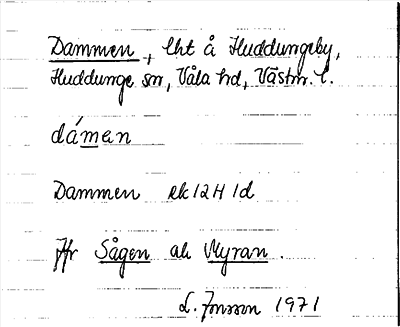 Dammen, lht å Huddungeby,
Huddunge sn, Våla hd, Västm. l.
dámen
Dammen ek 12H 1d
Jfr Sågen ak Myran.
L. Jonsson 1971